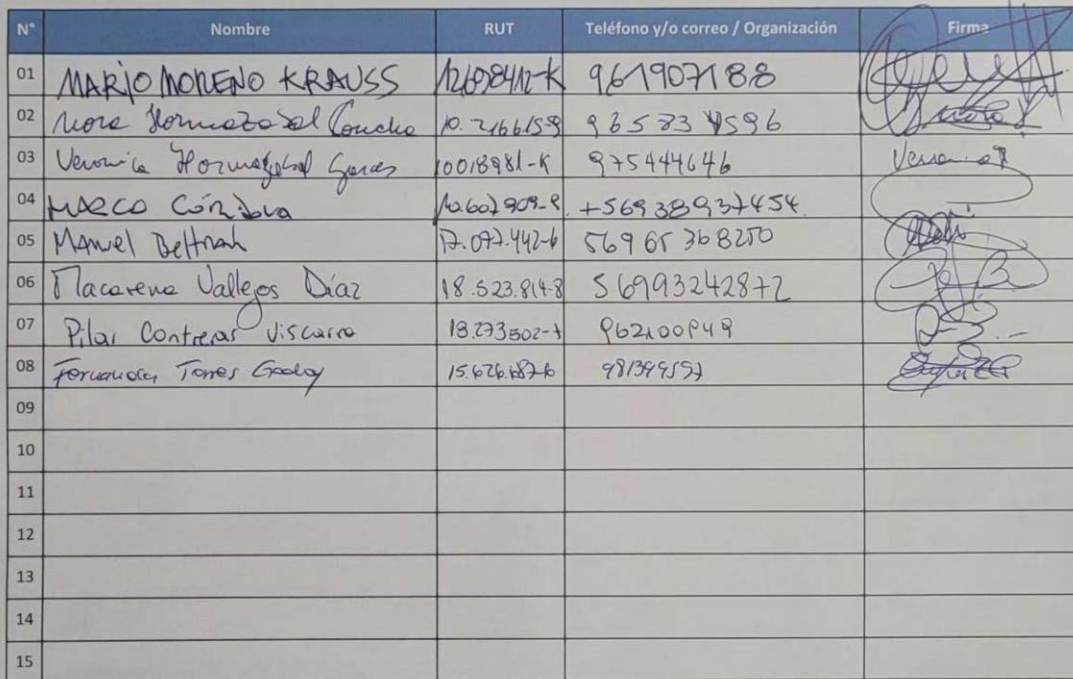 N° Nombre RUT Teléfono y/o correo / Organización Firma
01 MARIO MORENO KRAUSS 12698412-K 961907188
02 Nora Hormazabal Concha 965834596
03 Veronica Hormazabal 10018981-K 975444646
04 MARCO Córdova +56938937454
05 Manuel Beltran 17.097.442-6 56965368250
06 Macarena Vallejos Díaz 18.523.814-8 56993242872
07 Pilar Contreras Viscarra 18.273502-7
08 Fernanda Torres Godoy
09
10
11
12
13
14
15